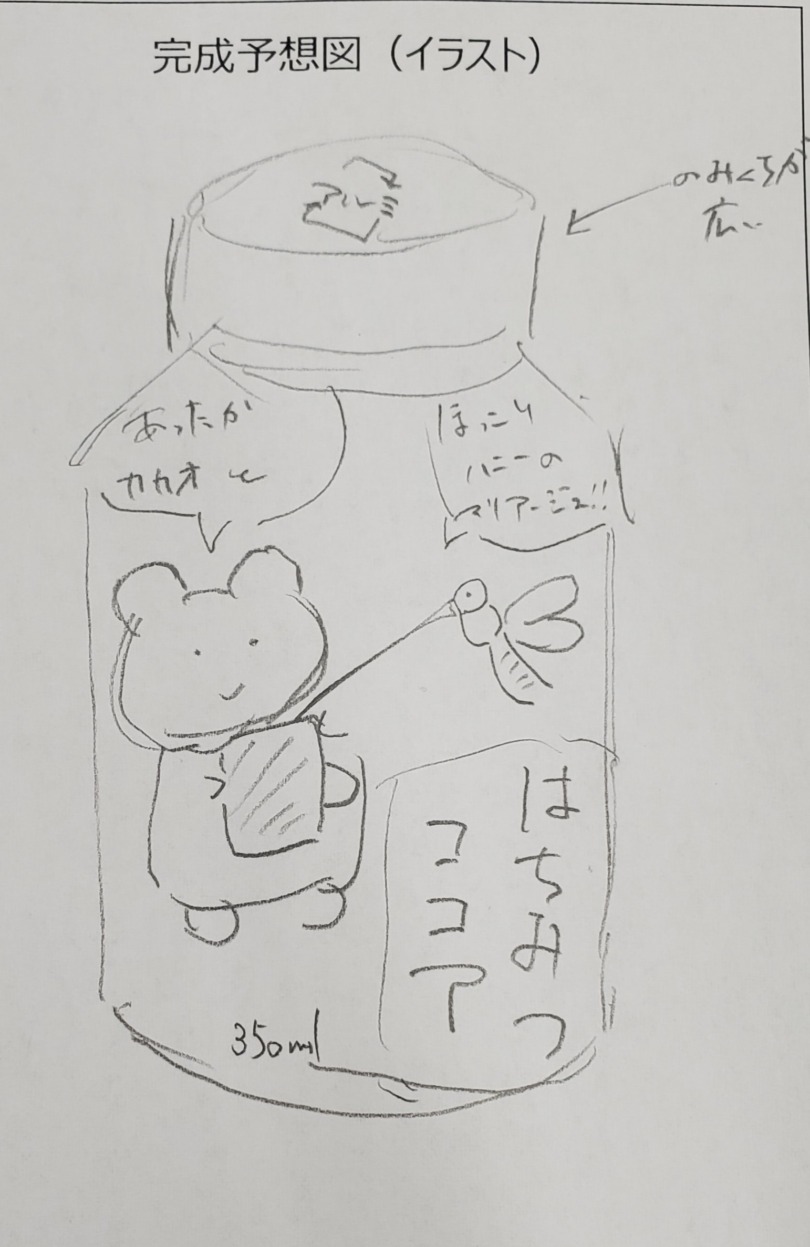 完成予想図（イラスト）
アルミ
のみくちが
広い
あったか
カカオと
ほっこり
ハニーの
マリアージュ!!
はちみつ
ココア
350ml